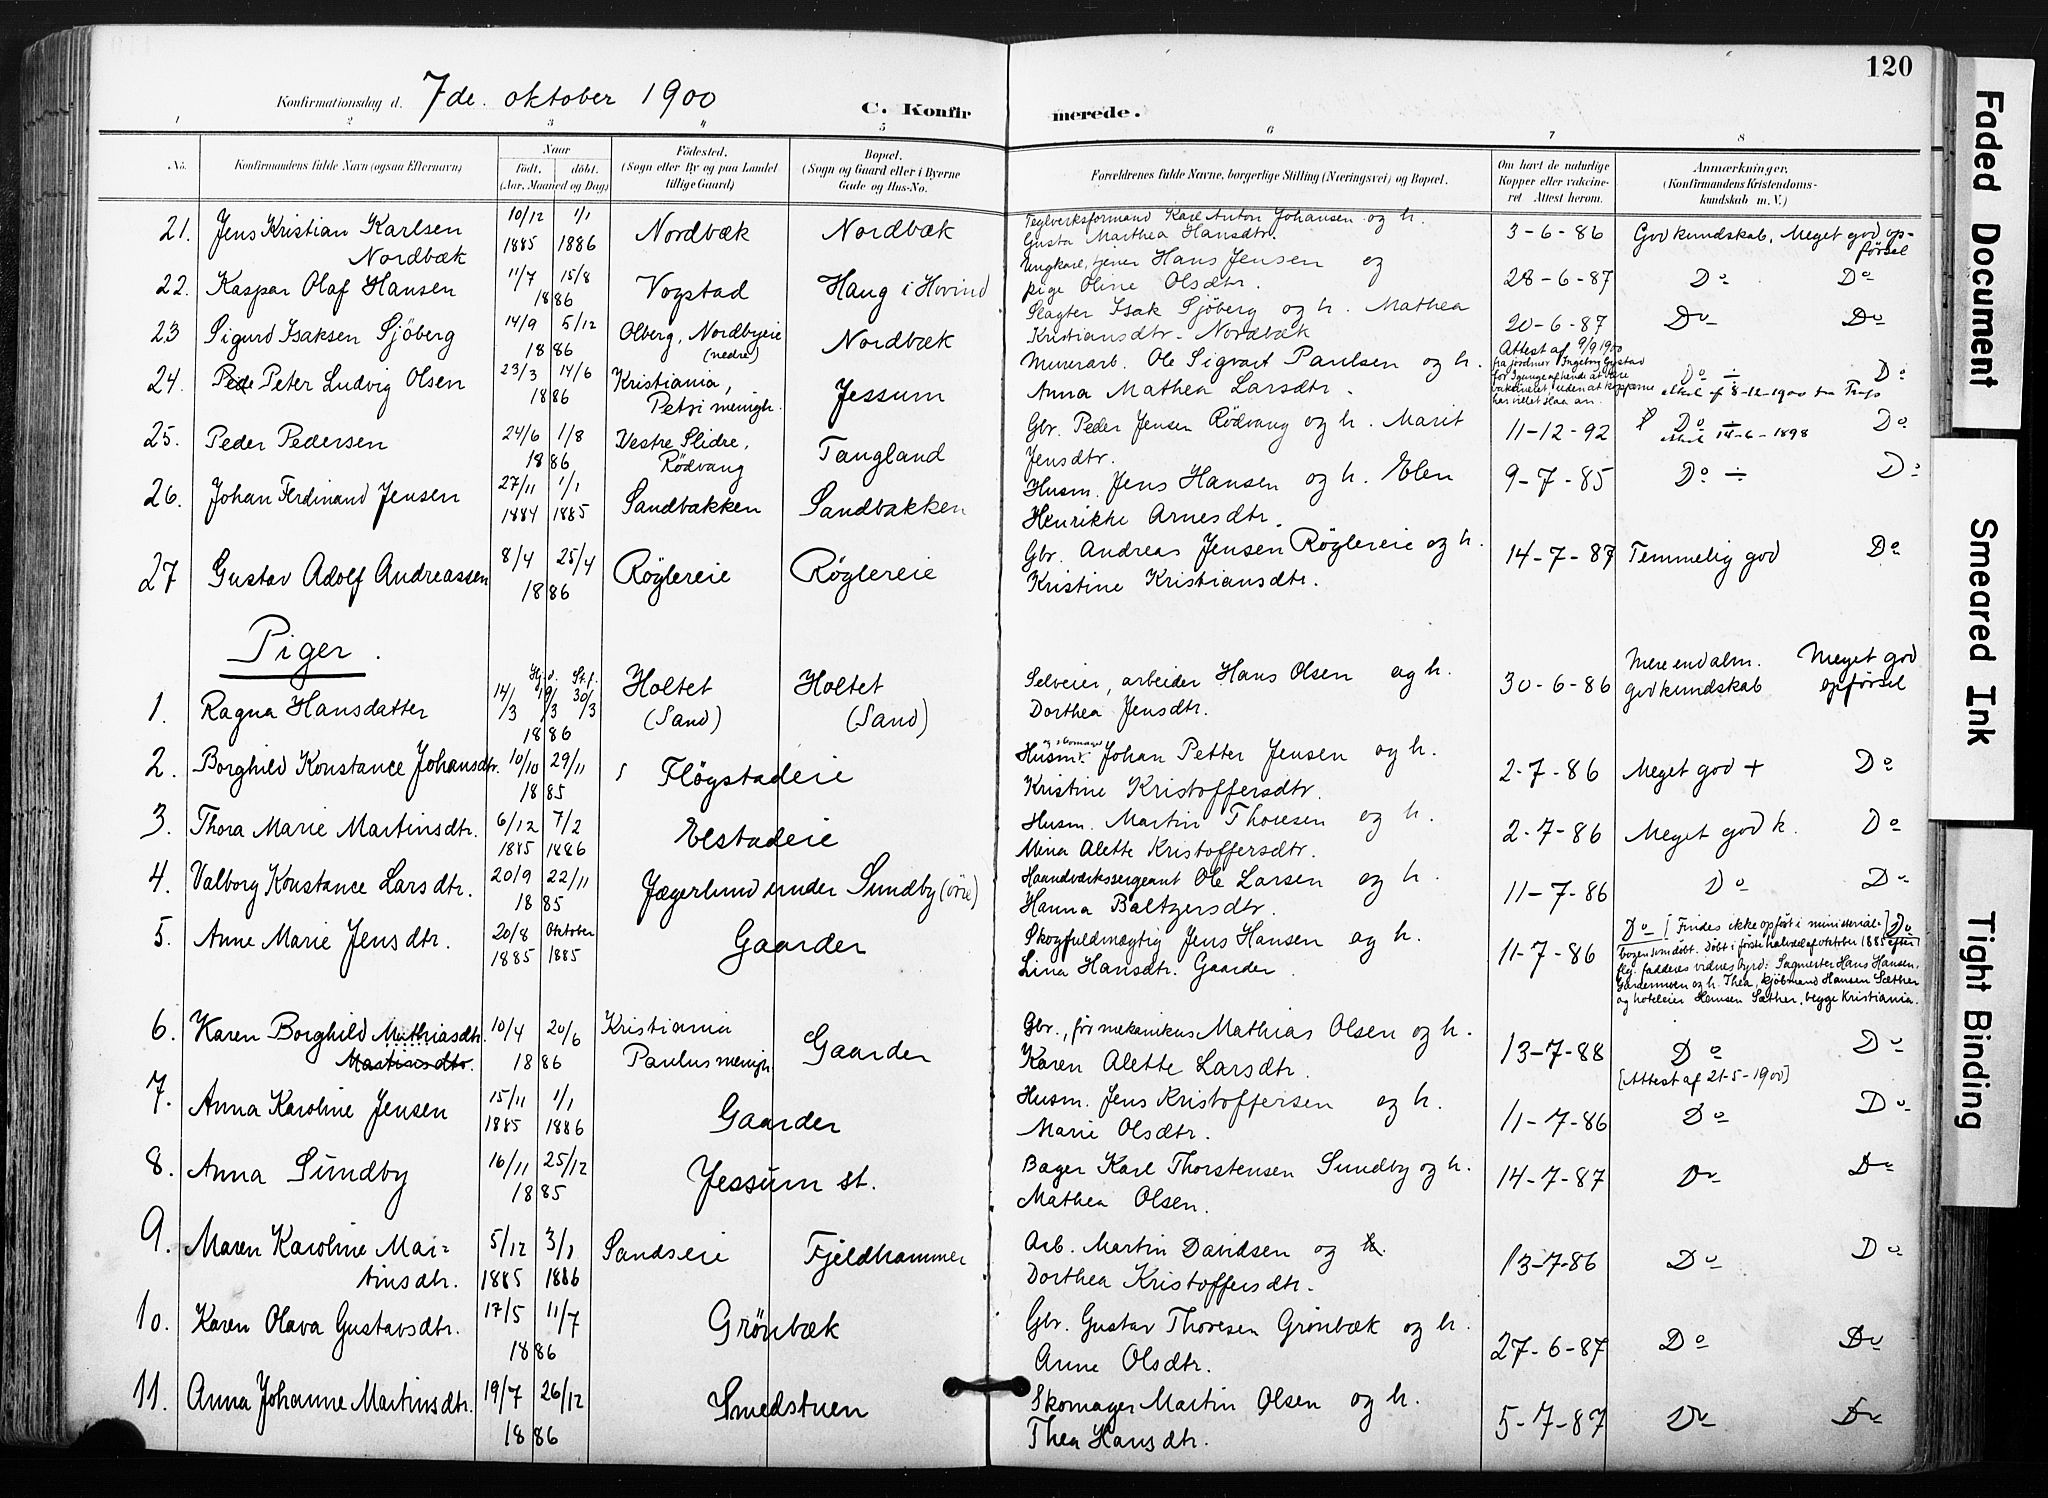 120
Konfirmationsdag d. 7de. oktober 1900
C. Konfirmerede.
1 2 3 4 5 6 7 8
No. Konfirmandens fulde Navn (ogsaa Efternavn) Naar födt. döbt. (Aar, Maaned og Dag) Födested. (Sogn eller By og paa Landet tillige Gaard) Bopæl. (Sogn og Gaard eller i Byerne Gade og Hus-No. Forældrenes fulde Navne, borgerlige Stilling (Næringsvei) og Bopæl. Om havt de naturlige Kopper eller vakcineret. Attest herom. Anmærkninger. (Konfirmandens Kristendomskundskab m. V.)
21. Jens Kristian Karlsen Nordbæk 10/12 1885 1/1 1886 Nordbæk Nordbæk Teglverksformand Karl Anton Johansen og h. Gusta Marthea Hansdtr. 3-6-86 God kundskab. Meget god opførsel
22. Kaspar Olaf Hansen 11/7 15/8 1886 Vogstad Haug i Hovind Ungkarl, tjener Hans Jensen og pige Oline Olsdtr. 28-6-87 Do Do
23 Sigurd Isaksen Sjöberg 14/9 5/12 1886 Olberg, Nordbyeie (nedre) Nordbæk Slagter Isak Sjöberg og h. Mathea Kristiansdtr. Nordbæk 20-6-87 Do Do
24. Peter Ludvig Olsen 23/3 14/6 1886 Kristiania, Petri menigh. Jessum Murerarb. Ole Sigvart Paulsen og h. Anna Mathea Larsdtr. Attest af 9/9 1900 Do ÷ Do
25. Peder Pedersen 24/6 1/8 1886 Vestre Slidre, Rödvang Tangland Gbr. Peder Jensen Rödvang og h. Marit Jensdtr. 11-12-92 Do ÷ 14-6-1898 Do
26. Johan Ferdinand Jensen 27/11 1884 1/1 1885 Sandbakken Sandbakken Husm. Jens Hansen og h. Elen Henrikke Arnesdtr. 9-7-85 Do ÷ Do
27 Gustav Adolf Andreassen 8/4 25/4 1886 Röglereie Röglereie Gbr. Andreas Jensen Röglereie og h. Kristine Kristiansdtr. 14-7-87 Temmelig god Do
Piger.
1. Ragna Hansdatter 14/3 30/3 1886 Holtet (Sand) Holtet (Sand) Selveier, arbeider Hans Olsen og h. Dorthea Jensdtr. 30-6-86 Mere end alm. god kundskab Meget god opførsel
2. Borghild Konstance Johansdtr. 10/10 29/11 1885 Flögstadeie Husm. og skomager Johan Petter Jensen og h. Kristine Kristoffersdtr. 2-7-86 Meget god + Do
3. Thora Marie Martinsdtr. 6/12 1885 7/2 1886 Elstadeie Husm. Martin Thoresen og h. Mina Alette Kristoffersdtr. 2-7-86 Meget god k. Do
4. Valborg Konstance Larsdtr. 20/9 22/11 1885 Jægerlund under Sundby (övre) Haandværkssergeant Ole Larsen og h. Hanna Baltzersdtr. 11-7-86 Do Do
5. Anne Marie Jensdtr. 20/8 1885 Oktober 1885 Gaarder Skogfuldmægtig Jens Hansen og h. Lina Hansdtr. Gaarder. 11-7-86 Do [Findes ikke opført i ministerialbogen som döbt. Döbt i förste halvdel af oktober 1885 efter flg. fadderes vidnesbyrd: Sagmester Hans Hansen, Gardermoen og h. Thea, kjöbmand Hansen Sæther og hoteleier Hansen Sæther, begge Kristiania.] Do
6. Karen Borghild Mathiasdtr. Martinsdtr. 10/4 20/6 1886 Kristiania Paulus menigh. Gaarder Gbr., før mekanikus Mathias Olsen og h. Karen Alette Larsdtr. 13-7-88 Do [Attest af 21-5-1900] Do
7. Anna Karoline Jensen 15/11 1885 1/1 1886 Gaarder Husm. Jens Kristoffersen og h. Marie Olsdtr. 11-7-86 Do Do
8. Anna Sundby 16/11 25/12 1885 Jessum st. Bager Karl Thorstensen Sundby og h. Mathea Olsen. 14-7-87 Do Do
9. Maren Karoline Martinsdtr. 5/12 1885 3/1 1886 Sandseie Fjeldhammer Arb. Martin Davidsen og h. Dorthea Kristoffersdtr. 13-7-86 Do Do
10. Karen Olava Gustavsdtr. 17/5 11/7 1886 Grönbæk Gbr. Gustav Thoresen Grönbæk og h. Anne Olsdtr. 27-6-87 Do Do
11. Anna Johanne Martinsdtr. 19/7 26/12 1886 Smedstuen Skomager Martin Olsen og h. Thea Hansdtr. 5-7-87 Do Do
Faded Document
Smeared Ink
Tight Binding